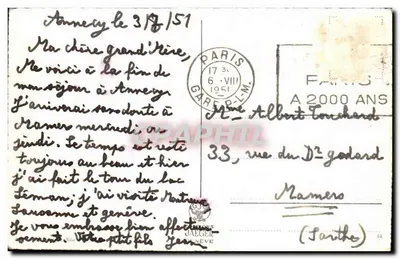 Annecy le 3/8/51
Ma chère grand'Mère,
Me voici à la fin de
mon séjour à Annecy
J'arriverai sans doute à
Mamers mercredi ou
jeudi. Le temps est resté
toujours au beau et hier
j'ai fait le tour du lac
Léman; j'ai visité Montreux
Lausanne et genève.
Je vous embrasse bien affectueu
sement. Votre ptit fils Jean
PARIS
6 · VIII
1951
GARE P.L.M.
PARIS
A 2000 ANS
Mme Albert Touchard
33, rue du Dr godard
Mamers
(Sarthe)
JAEGER